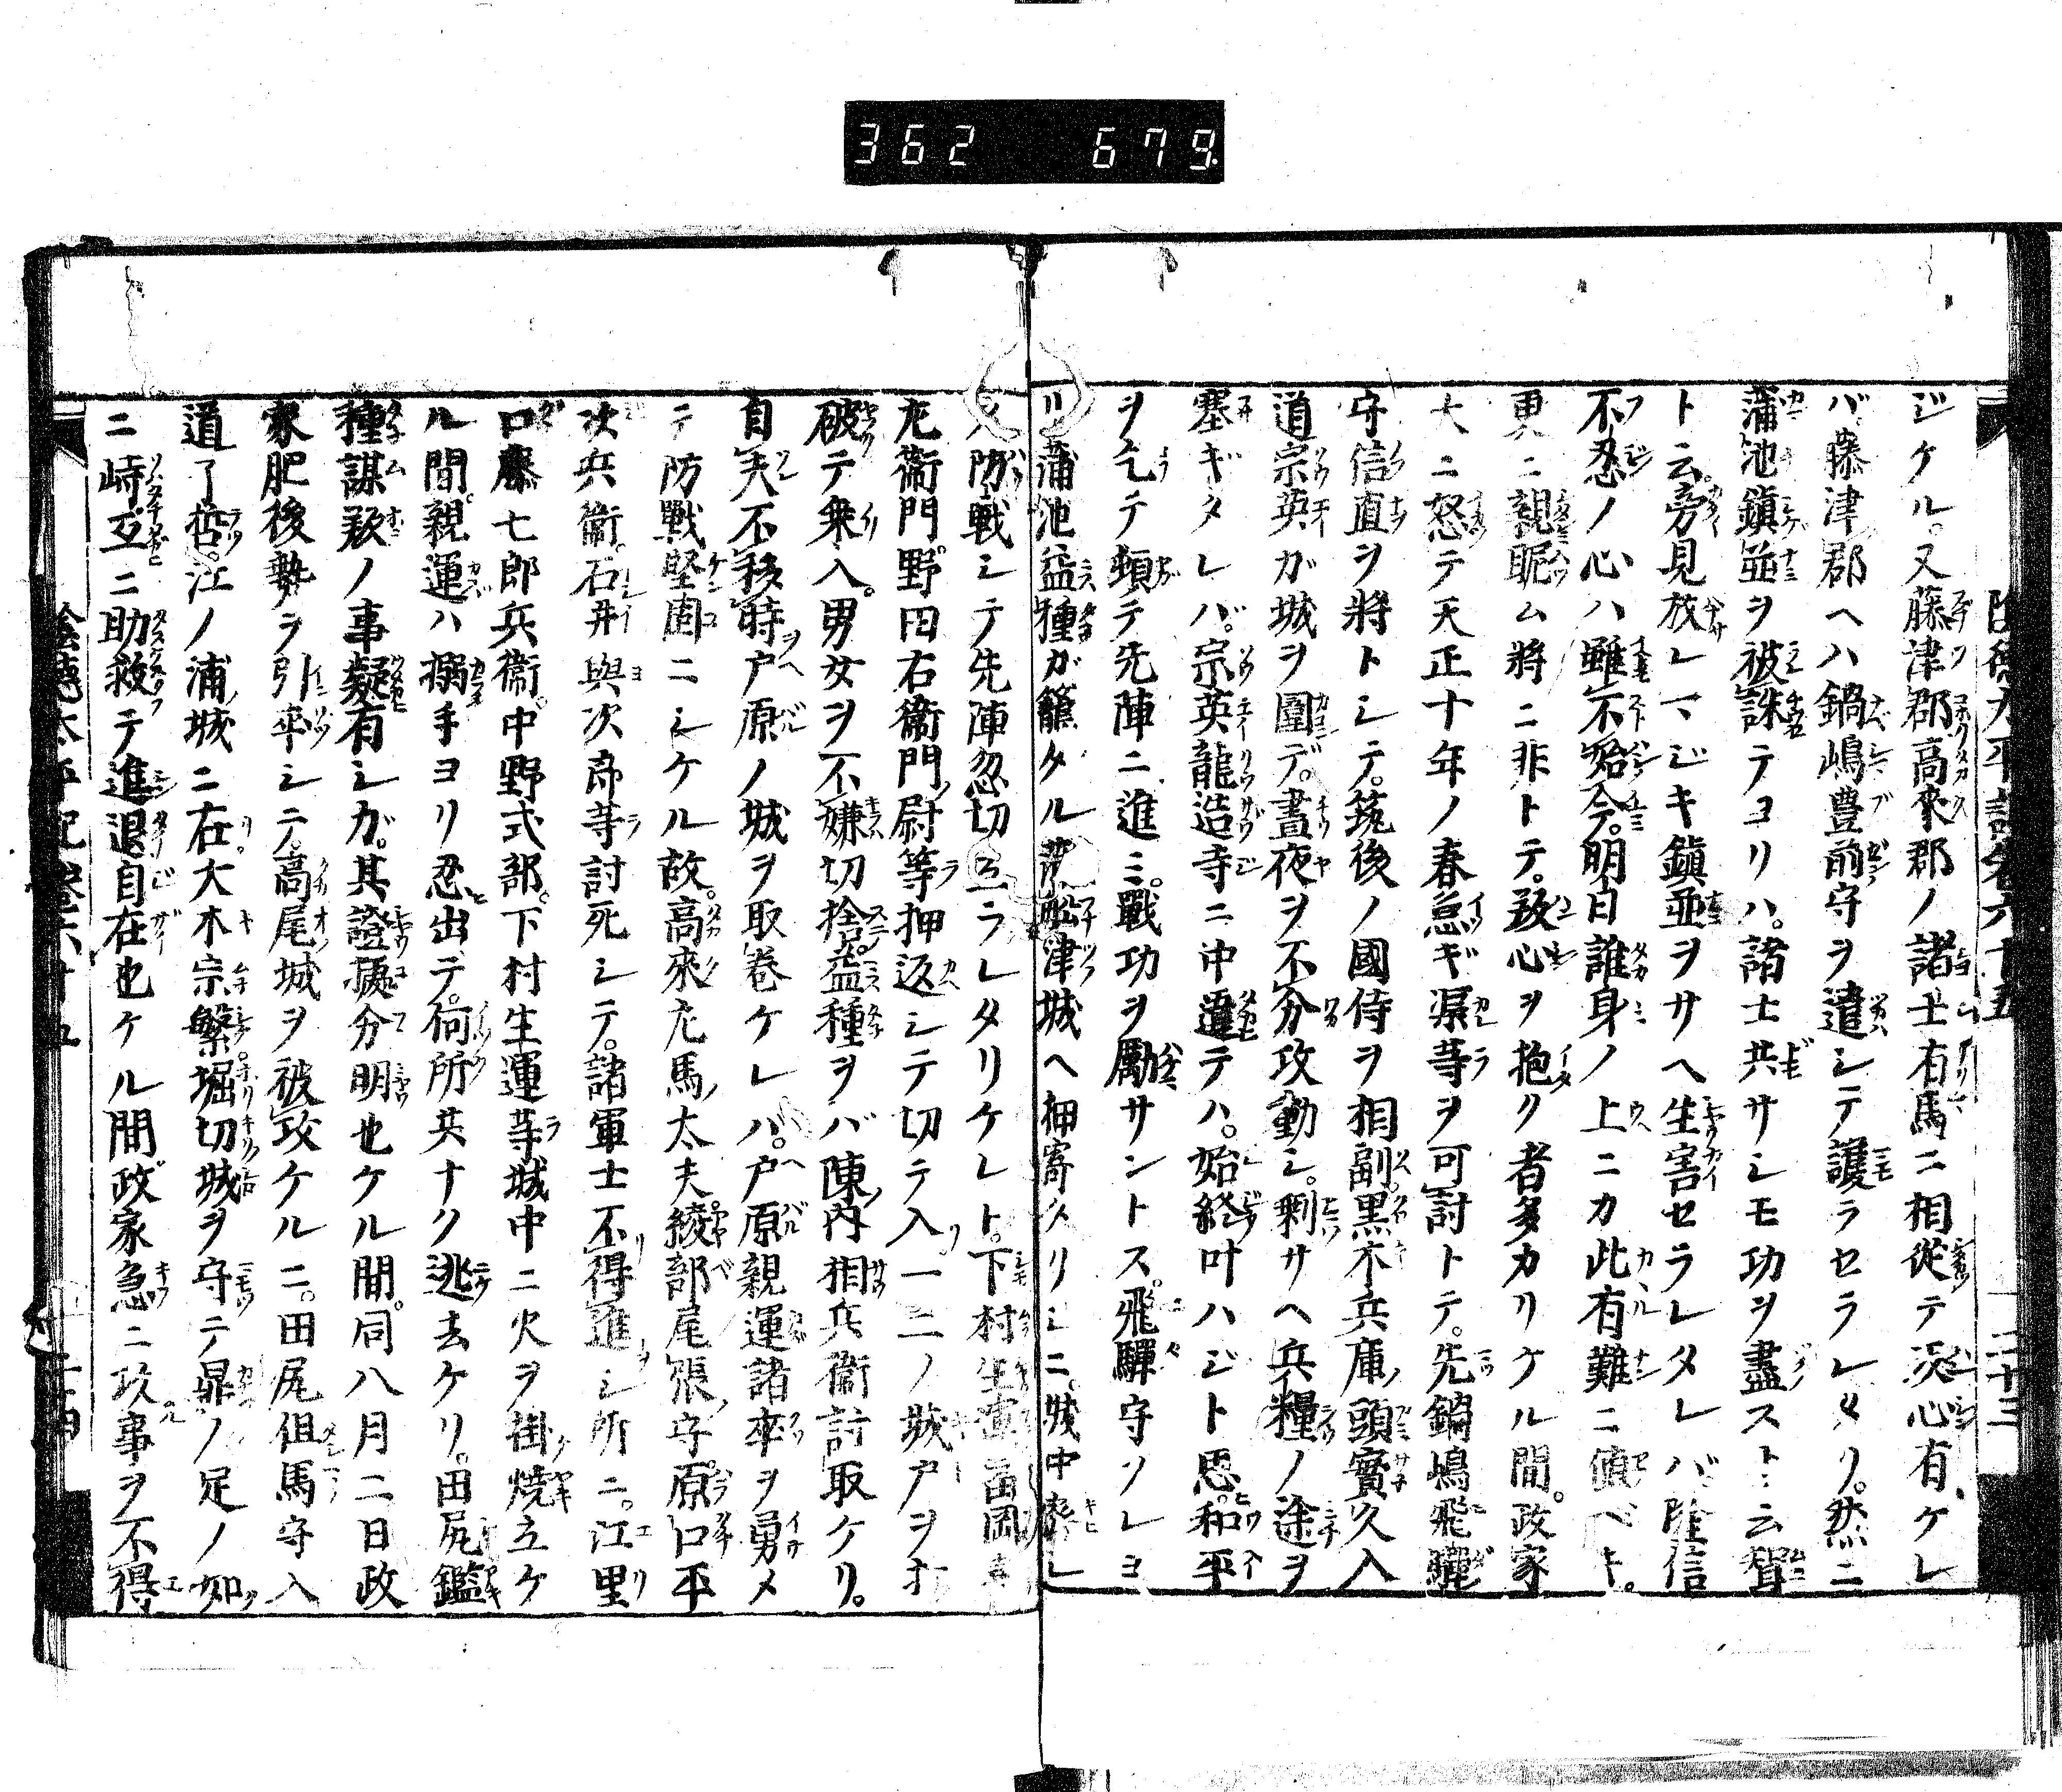 362 679.
陰徳太平記卷六十五 二十三
ジケル。又藤津郡高來郡ノ諸士有馬ニ相從テ灾心有ケレ
バ。藤津郡ヘハ鍋嶋豊前守ヲ遣シテ護ラセラレタリ。然ニ
蒲池鎮並ヲ被誅テヨリハ。諸士共サシモ功ヲ盡スト云聟
ト云。旁見放レマジキ鎮並ヲサヘ生害セラレタレバ隆信
不忍ノ心ハ雖不始今。明日誰身ノ上ニカ此有難ニ値ベキ。
更ニ親眤ム將ニ非トテ。敌心ヲ抱ク者多カリケル間。政家
大ニ怒テ天正十年ノ春急ギ渠等ヲ可討トテ。先鍋嶋飛驒
守信直ヲ將トシテ。筑後ノ國侍ヲ相副黒木兵庫頭實久入
道宗英ガ城ヲ圍デ。晝夜ヲ不分攻動シ。剰サヘ兵糧ノ途ヲ
塞ギタレバ。宗英龍造寺ニ中違テハ。始終叶ハジト思。和平
ヲ乞テ頓テ先陣ニ進ミ。戰功ヲ勵サントス。飛驒守ソレヨ
リ蒲池益種ガ籠タル津城ヘ押寄タリシニ。城中
防戰シテ先陣忽切立ラレタリケレト。下村生運
左衞門。野田右衞門尉等押返シテ切テ入。一二ノ城戸ヲ打
破テ乗入。男女ヲ不嫌切捨。益種ヲバ陳内相兵衞討取ケリ。
自夫不移時戸原ノ城ヲ取巻ケレハ。戸原親運諸卒ヲ勇メ
テ防戰堅固ニシケル故。高來左馬太夫。綾部尾張守。原口平
次兵衞。石井與次郎等討死シテ。諸軍士不得進シ所ニ。江里
口藤七郎兵衞。中野式部。下村生運等城中ニ火ヲ掛焼立ケ
ル間。親運ハ搦手ヨリ忍出テ。何所共ナク逃去ケリ。田尻鑑
種謀敌ノ事疑有シガ。其證㨿分明也ケル間。同八月二日政
家肥後勢ヲ引率シテ。高尾城ヲ被攻ケルニ。田尻但馬守入
道了哲。江ノ浦城ニ在。大木宗繁。堀切城ヲ守テ鼎ノ足ノ如
ニ峙互ニ助救テ進退自在也ケル間政家急ニ攻事ヲ不得
陰徳太平記卷六十五 二十四